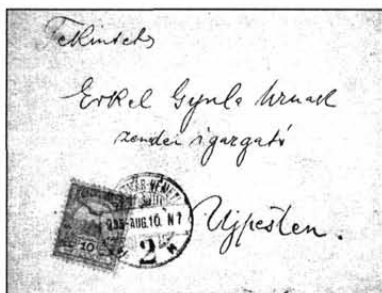 Tekintetes
Erkel Gyula Urnak
zenedei igazgató
Ujpesten.
10
AUG. 10. N7
2